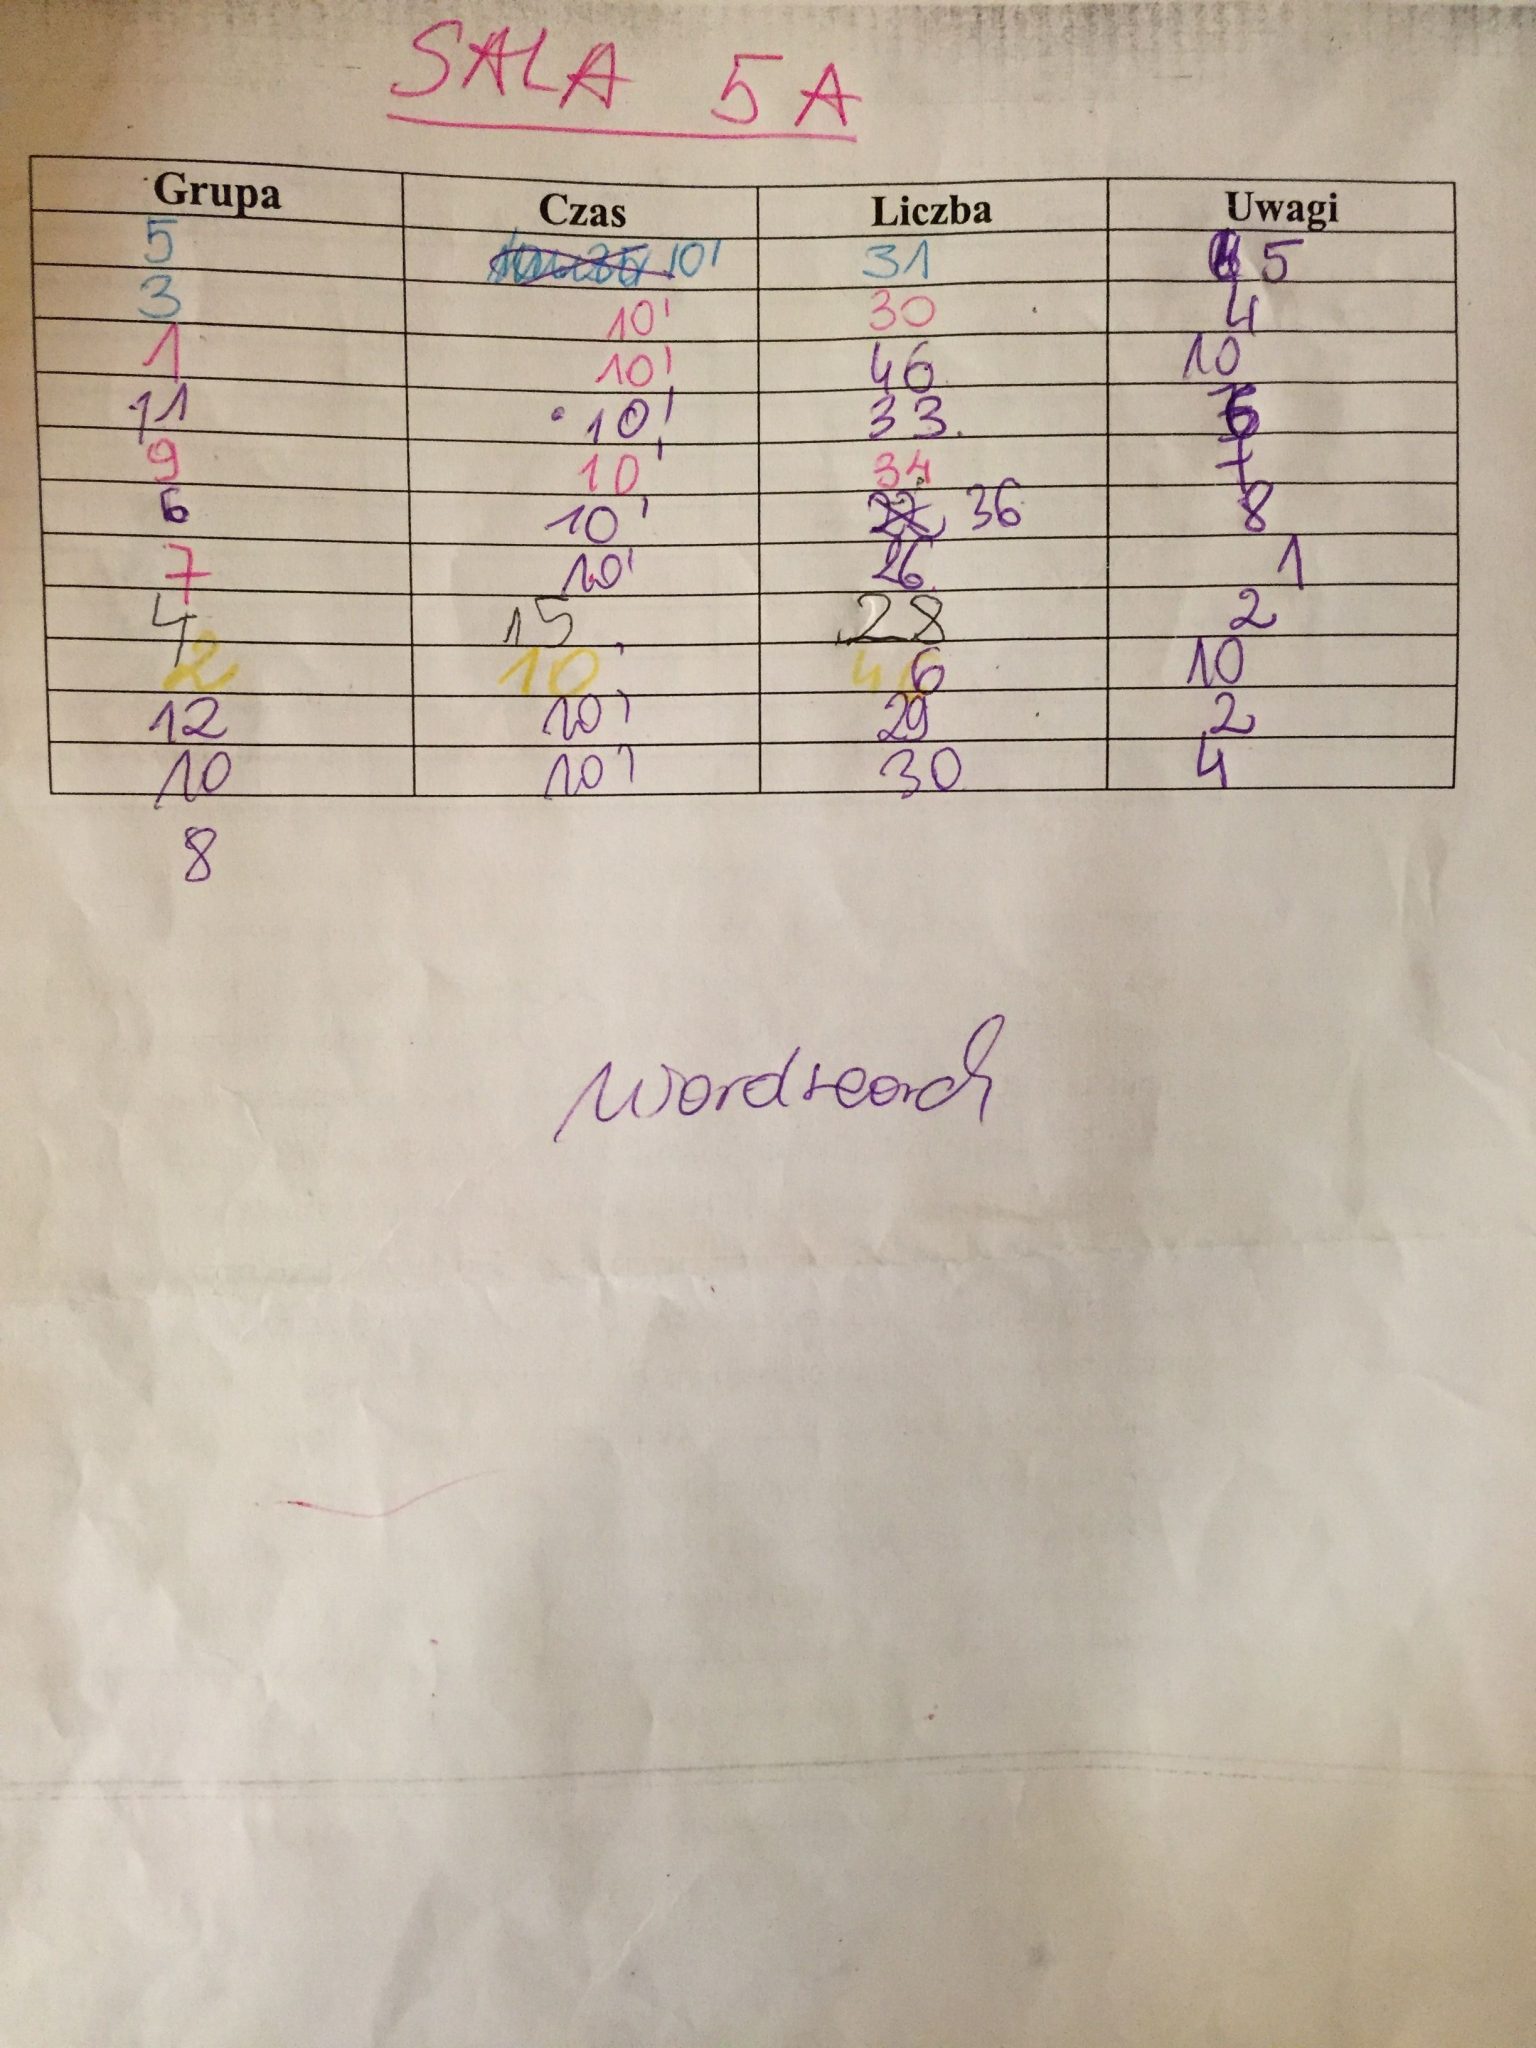 SALA 5A
Grupa Czas Liczba Uwagi
5 10' 31 5
3 10' 30 4
1 10' 46 10
11 10' 33. 6
9 10' 34 7
6 10' 36 8
7 10' 26 1
4 15 28 2
2 10' 46 10
12 10' 29 2
10 10' 30 4
8
Wordsearch